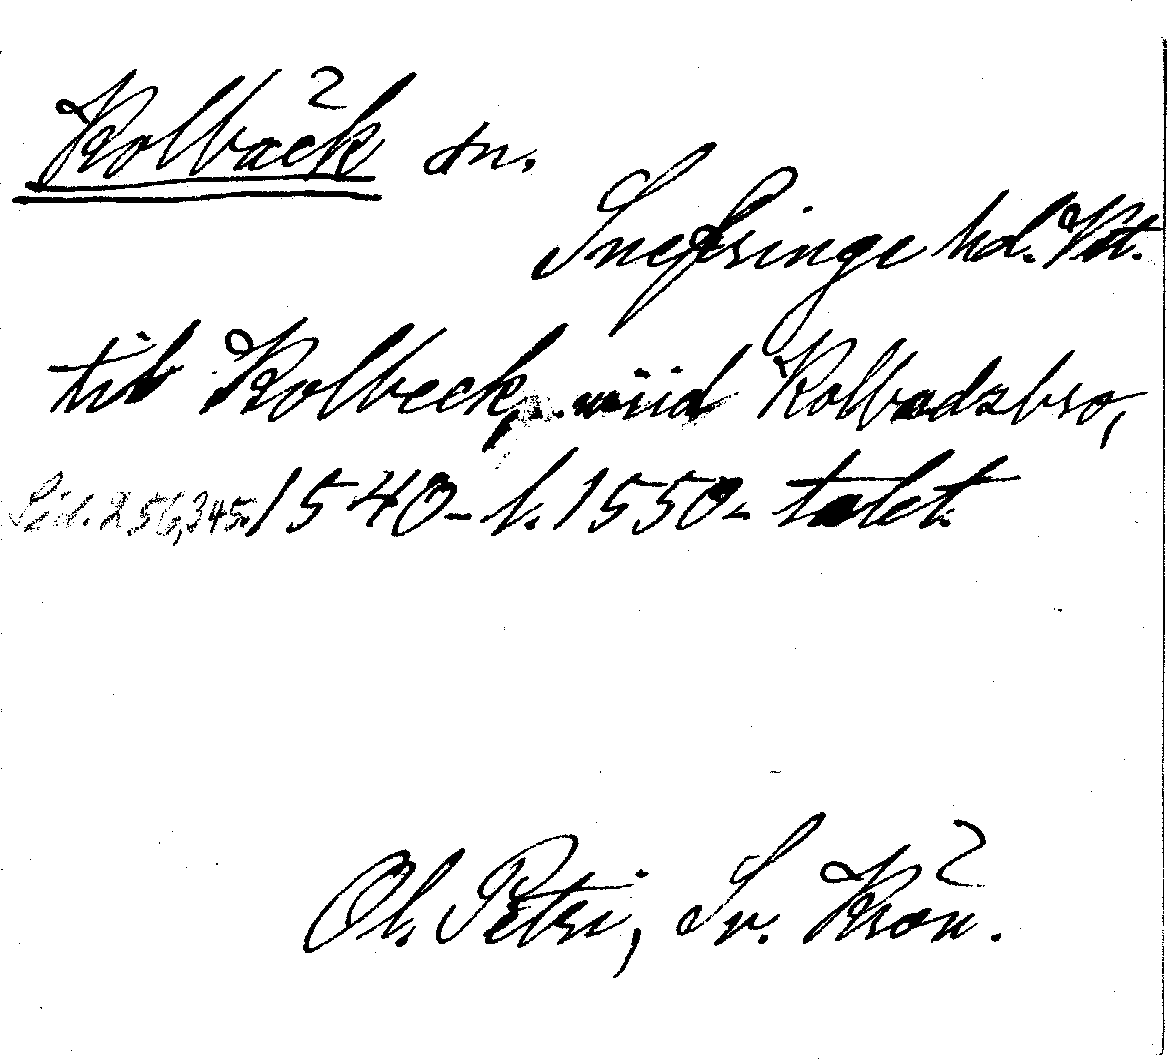 Kolbäck sn.
Snefringe hd. Vst.
till Kolbeck, wiid Kolbadzbro,
Sid. 256, 345. 1540-t. 1550-talet
Ol. Petri, Sv. Krön.